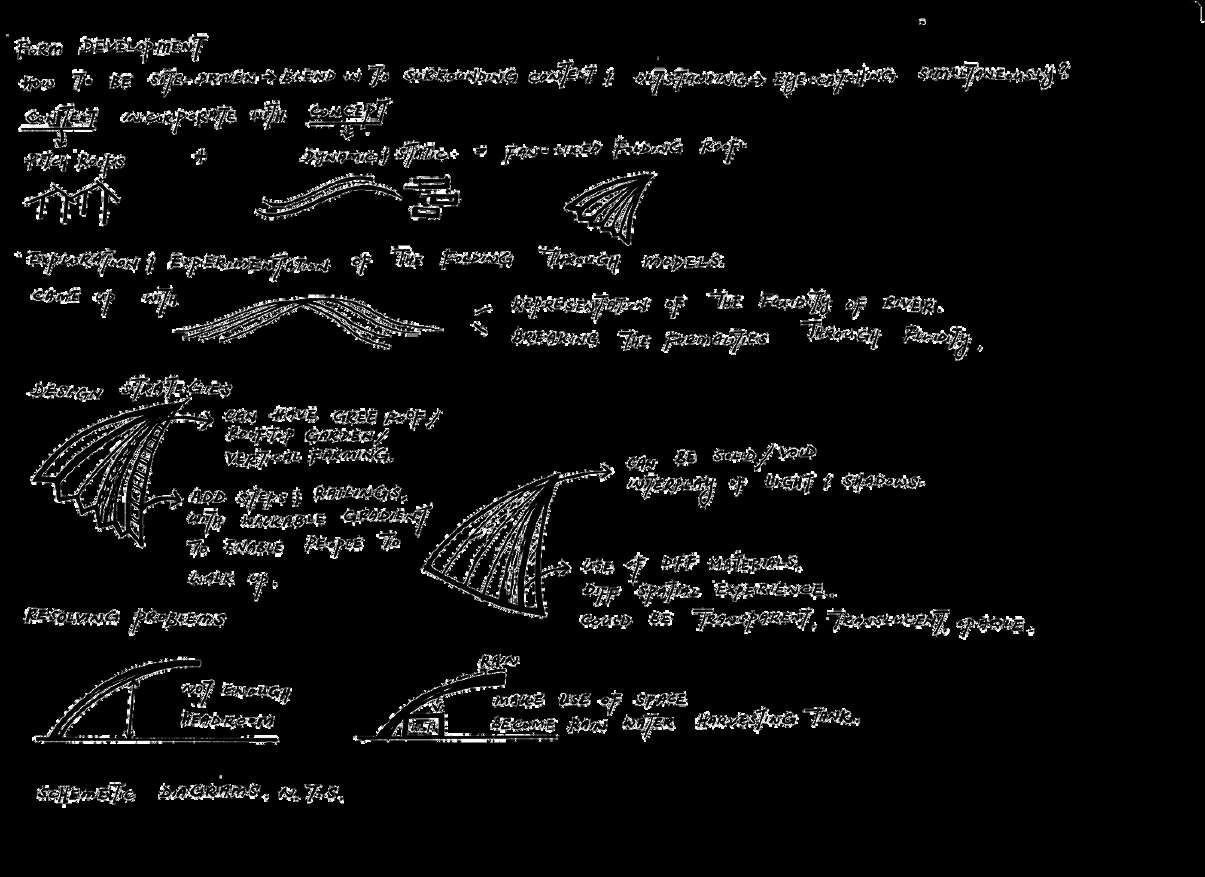 FORM DEVELOPMENT
HOW TO BE SITE-DRIVEN → BLEND IN TO SURROUNDING CONTEXT & OUTSTANDING → EYE-CATCHING SIMULTANEOUSLY?
CONTEXT INCORPORATE WITH CONCEPT
PITCH ROOFS + DYNAMIC & STATIC. = FAN-LIKED FOLDING ROOF
EXPLORATION & EXPERIMENTATION OF THE FOLDING THROUGH MODELS.
COME UP WITH
REPRESENTATION OF THE FLUIDITY OF RIVER.
BREAKING THE FORMALITIES THROUGH FLUIDITY.
DESIGN STRATEGIES
CAN HAVE GREE ROOF/
ROOFTOP GARDEN/
VERTICAL FARMING.
ADD STEPS & RAILINGS.
WITH WALKABLE GRADIENT
TO ENABLE PEOPLE TO
WALK UP.
CAN BE SOLID/VOID
INTERPLAY OF LIGHT & SHADOWS.
USE OF DIFF MATERIALS.
DIFF SPATIAL EXPERIENCE.
COULD BE TRANSPARENT, TRANSLUCENT, OPAQUE.
RESOLVING PROBLEMS
NOT ENOUGH
HEADROOM
RAIN
MAKE USE OF SPACE
BECOME RAIN WATER HARVESTING TANK.
SCHEMETIC DIAGRAMS, N.T.S.